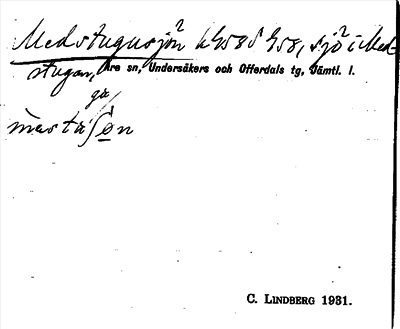 Medstugusjön k458 ö 458, sjö i Med-
stugan, Åre sn, Undersåkers och Offerdals tg, Jämtl. l.
ga
mæsta∫øn
C. LINDBERG 1931.